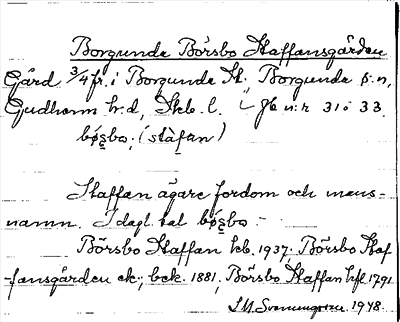 Borgunda Börsbo Staffansgården
Gård 3/4 fr. i Borgunda St., Borgunda s:n,
Gudhems h:d, Skb. l. i Jb n:r 31 o 33
bøsbo, (stàfan)
Staffan ägare fordom och mans-
namn. I dagl. tal bøsbo.
Börsbo Staffan hcb. 1937, Börsbo Staf-
fansgården ek., bek. 1881, Börsbo Staffan hfl 1791
1948